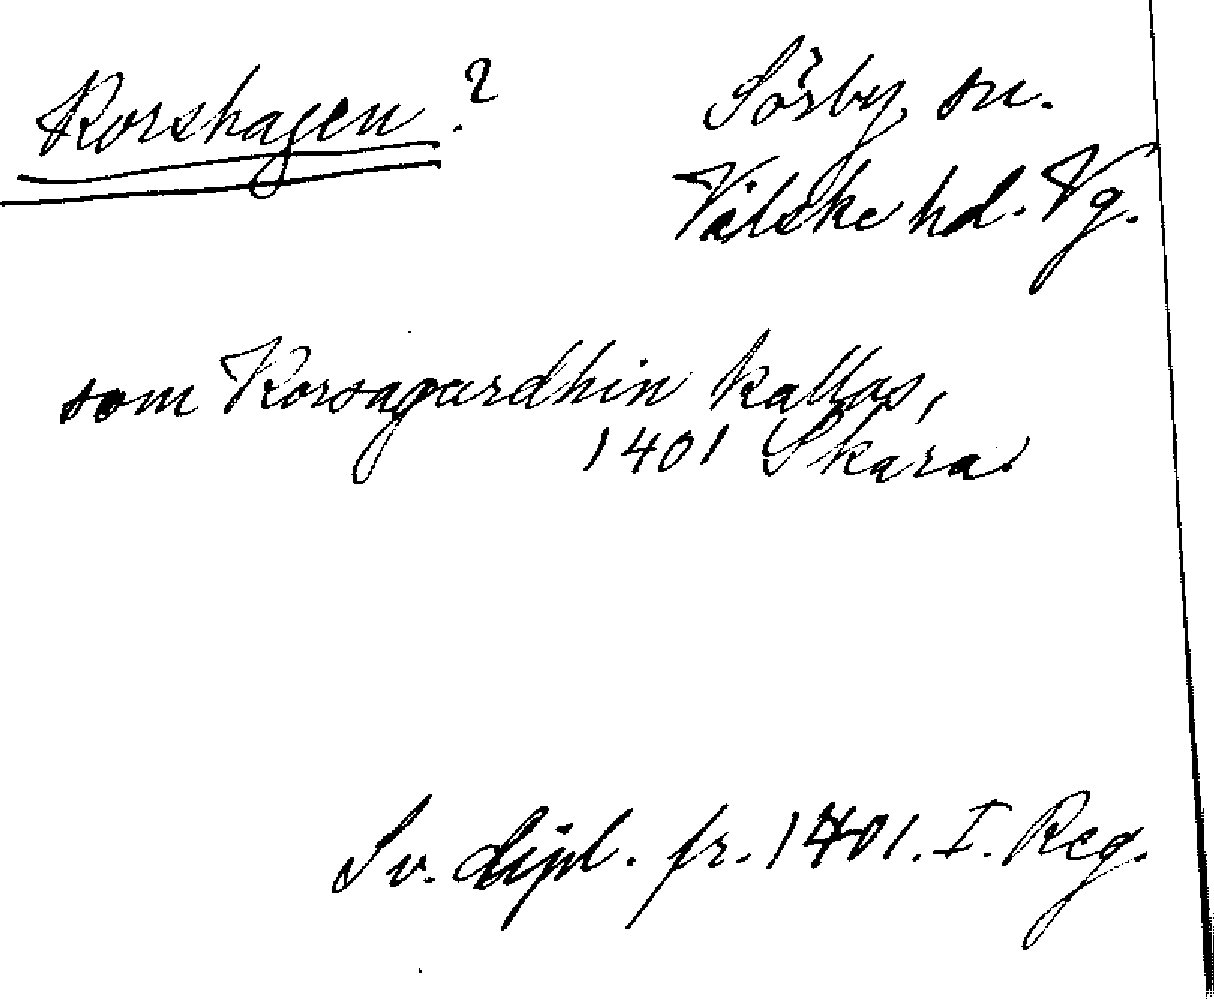 Korshagen?
Sörby sn.
Vilske hd. Vg.
som Korsagardhin kallas,
1401 Skara
Sv. dipl. fr. 1401. I. Reg.